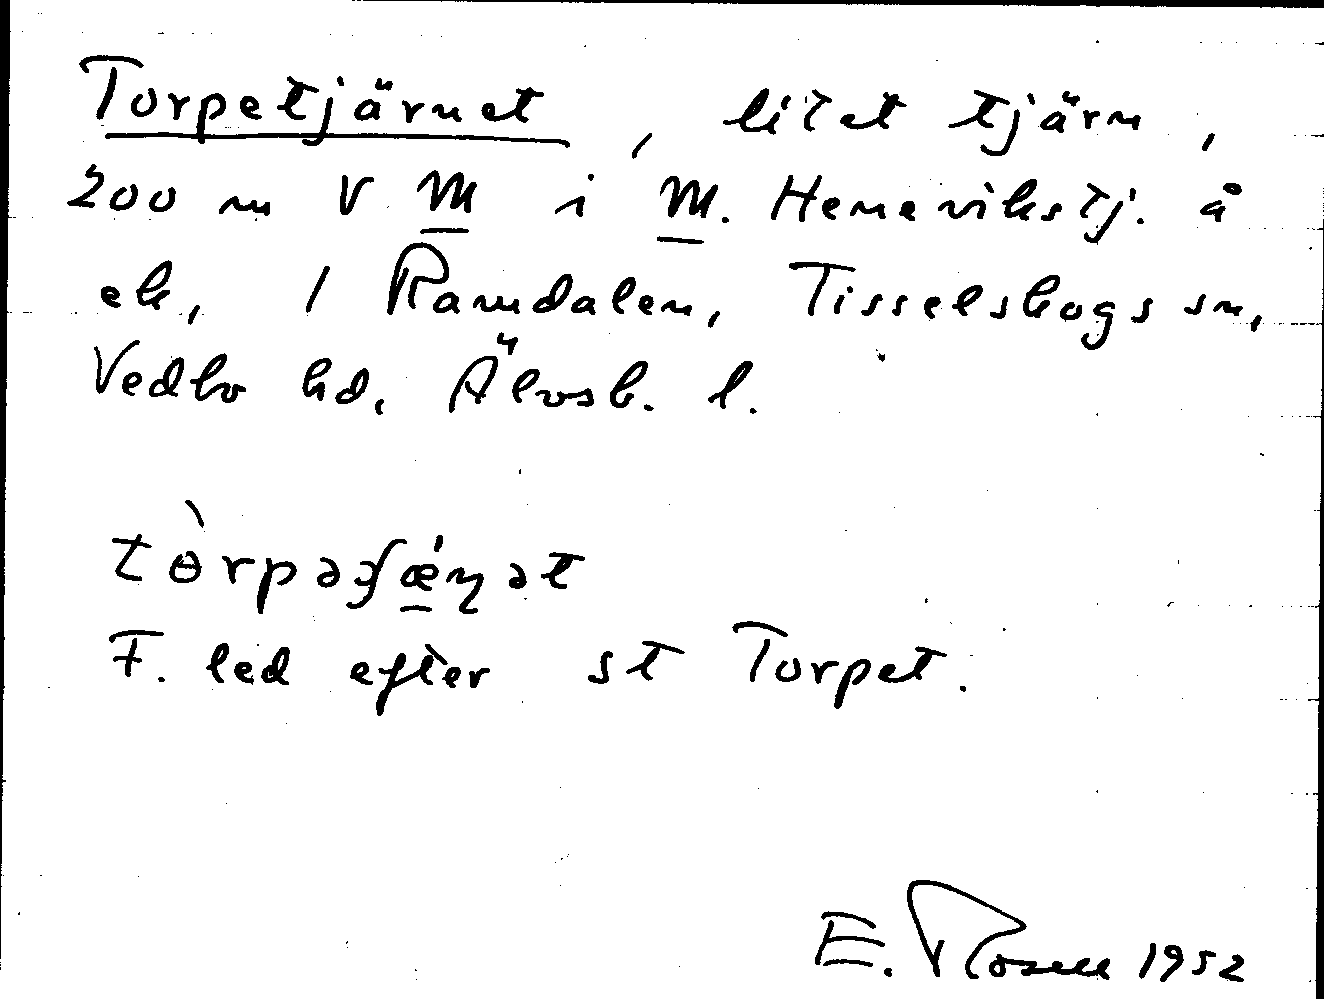 Torpetjärnet, litet tjärn,
200 m V M i M. Henevikstj. å
ek, / Ramdalen, Tisselskogs sn,
Vedbo hd, Älvsb. l.
F. led efter st Torpet.
E. Rosell 1952